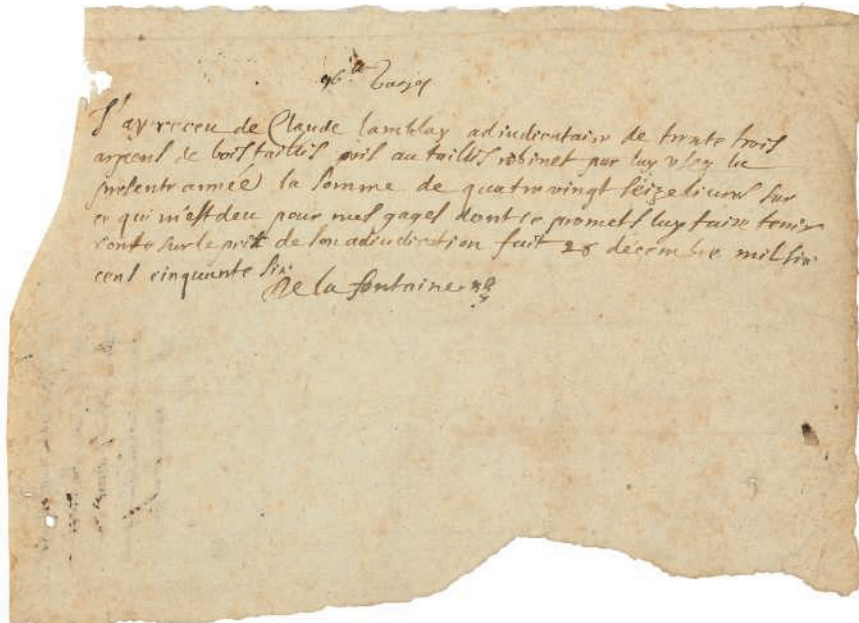 96
J'ay receu de Claude lamblay adiudicataire de trente trois
arpens de bois taillis pris au taillis robinet par luy usez la
presente année la somme de quatre vingt seize liures sur
ce qui m'est deu pour mes gages dont ie promets luy faire tenir
conte sur le prix de son adiudication fait 28 decembre mil six
cens cinquante six
De la fontaine